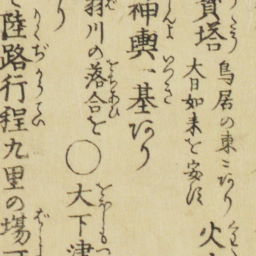 寳塔
鳥居の東ニあり
大日如来を安ず
火
神輿一基あり
羽川の落合を
〇大下津
陸路行程九里の場